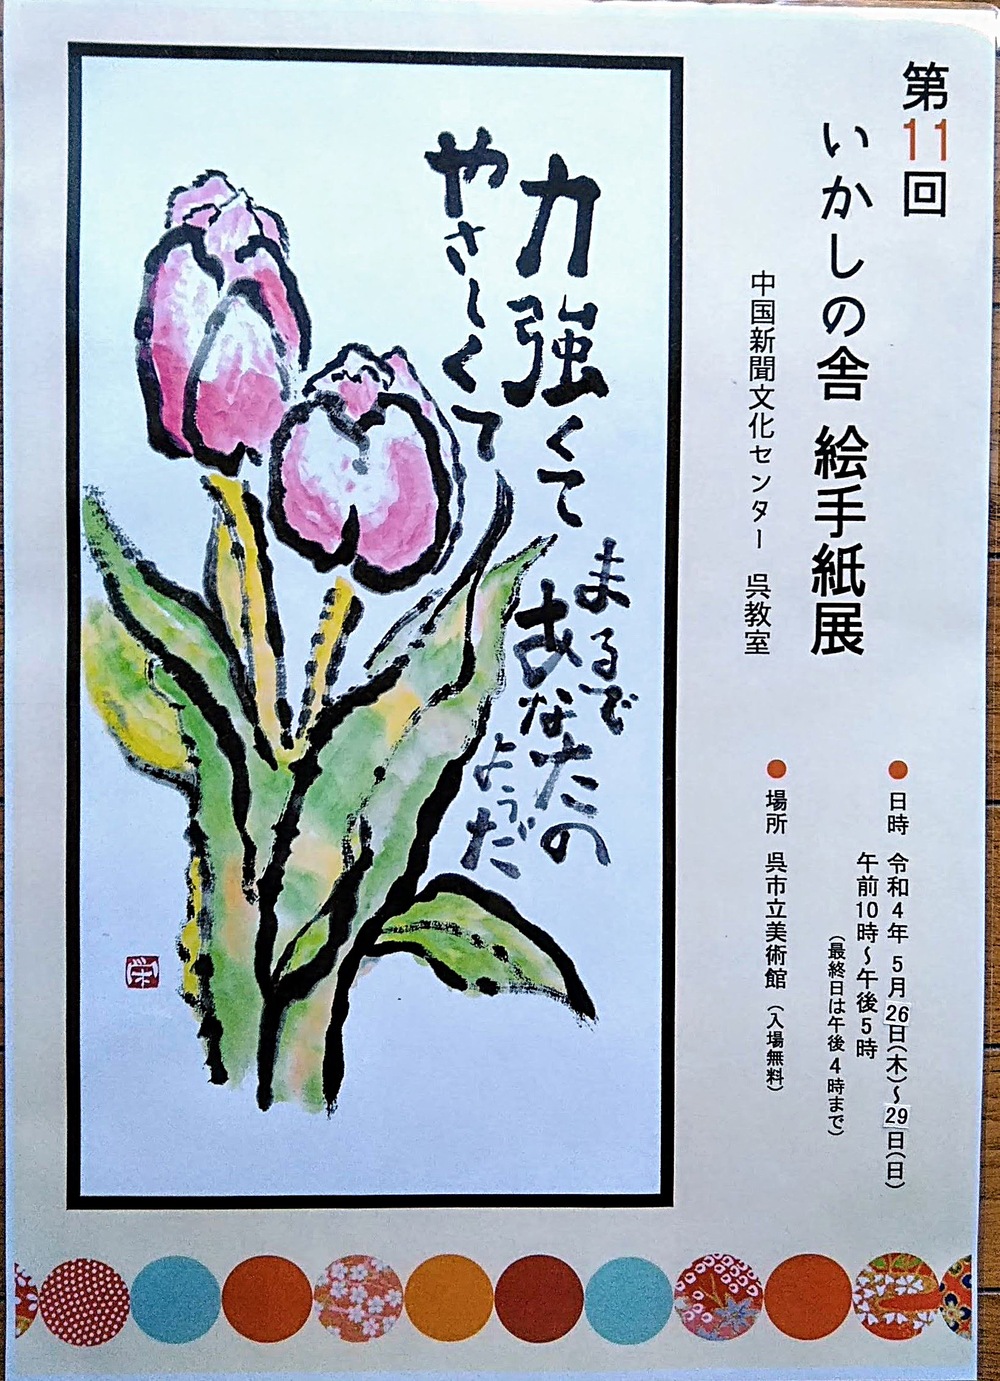 第11回
いかしの舎 絵手紙展
中国新聞文化センター 呉教室
● 日時 令和4年 5月26日(木)~29日(日)
午前10時~午後5時
(最終日は午後4時まで)
● 場所 呉市立美術館 (入場無料)
力強くて
やさしくて
まるで
あなたの
ようだ
栄